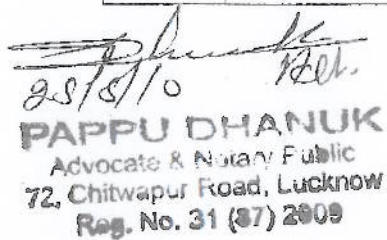 28/5/10
PAPPU DHANUK
Advocate & Notary Public
72, Chitwapur Road, Lucknow
Reg. No. 31 (87) 2009